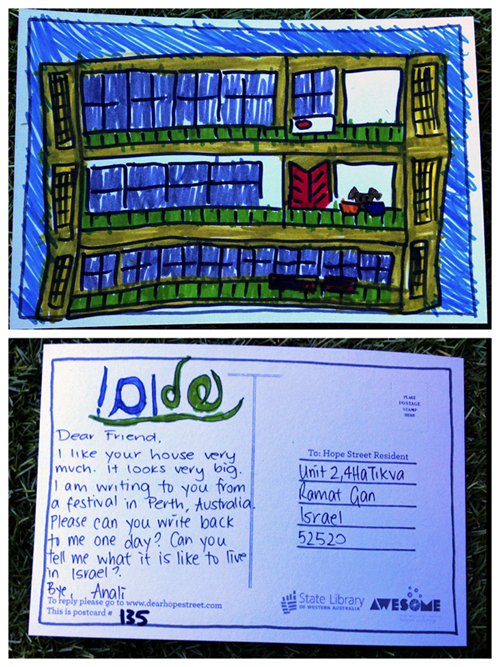 Dear Friend,
I like your house very
much. It looks very big.
I am writing to you from
a festival in Perth, Australia.
Please can you write back
to me one day? Can you
tell me what it is like to live
in Israel?
Bye, Anali
To reply please go to www.dearhopestreet.com
This is postcard # 135
PLACE
POSTAGE
STAMP
HERE
To: Hope Street Resident
Unit 2,4HaTikva
Ramat Gan
Israel
52520
State Library
OF WESTERN AUSTRALIA
AWESOME